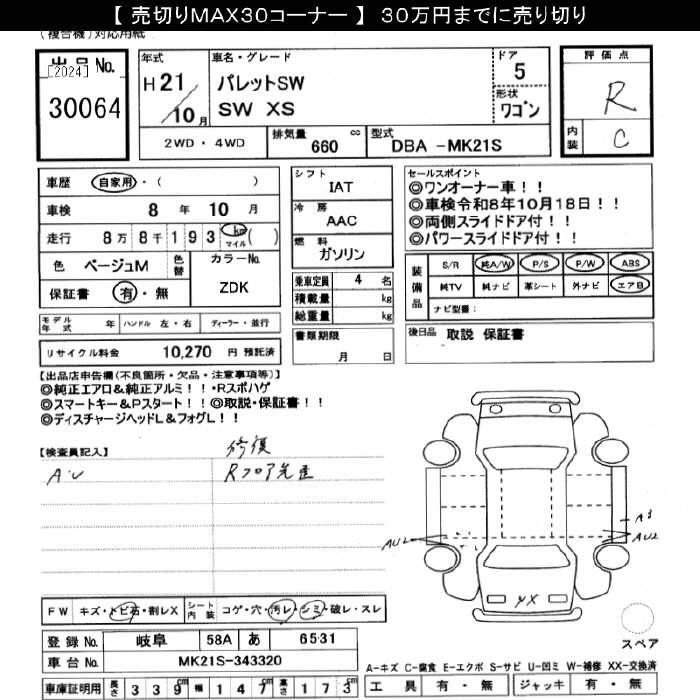 【 売切りMAX30コーナー 】 30万円までに売り切り
(複合機)対応用紙
出品No.
[2024]
30064
年式
H 21
10 月
車名・グレード
パレットSW
SW XS
ドア
5
形状
ワゴン
評価点
R
内装
C
2WD ・ 4WD
排気量 660 cc
型式 DBA -MK21S
車歴 自家用・( )
車検 8 年 10 月
走行 8万 8千 1 9 3 km マイル ( )
色 ベージュM
色替
カラーNo.
ZDK
保証書 有・無
シフト
IAT
冷房
AAC
燃料
ガソリン
乗車定員 4 名
積載量 kg
総重量 kg
セールスポイント
◎ワンオーナー車！！
◎車検令和8年10月18日！！
◎両側スライドドア付！！
◎パワースライドドア付！！
装備品
S/R 純A/W P/S P/W ABS
純TV 純ナビ 革シート 外ナビ エアB
ナビ型番：
モデル年式 年 ハンドル 左・右 ディーラー・並行
リサイクル料金 10,270 円 預託済
書類期限
月 日
後日品 取説 保証書
【出品店申告欄(不良箇所・欠品・注意事項等)】
◎純正エアロ&純正アルミ！！・Rスポハゲ
◎スマートキー&Pスタート！！◎取説・保証書！！
◎ディスチャージヘッドL&フォグL！！
【検査員記入】
修復
A・U
Rフロア先歪
AU2
A3
AU2
yX
FW キズ・トビ石・割レX
シート内装 コゲ・穴・汚レ・シミ・破レ・スレ
登録No. 岐阜 58A あ 6531
車台No. MK21S-343320
車庫証明用 長さ 3 3 9 cm 幅 1 4 7 cm 高さ 1 7 3 cm
スペア
A-キズ C-腐食 E-エクボ S-サビ U-凹ミ W-補修 XX-交換済
工具 有・無 ジャッキ 有・無